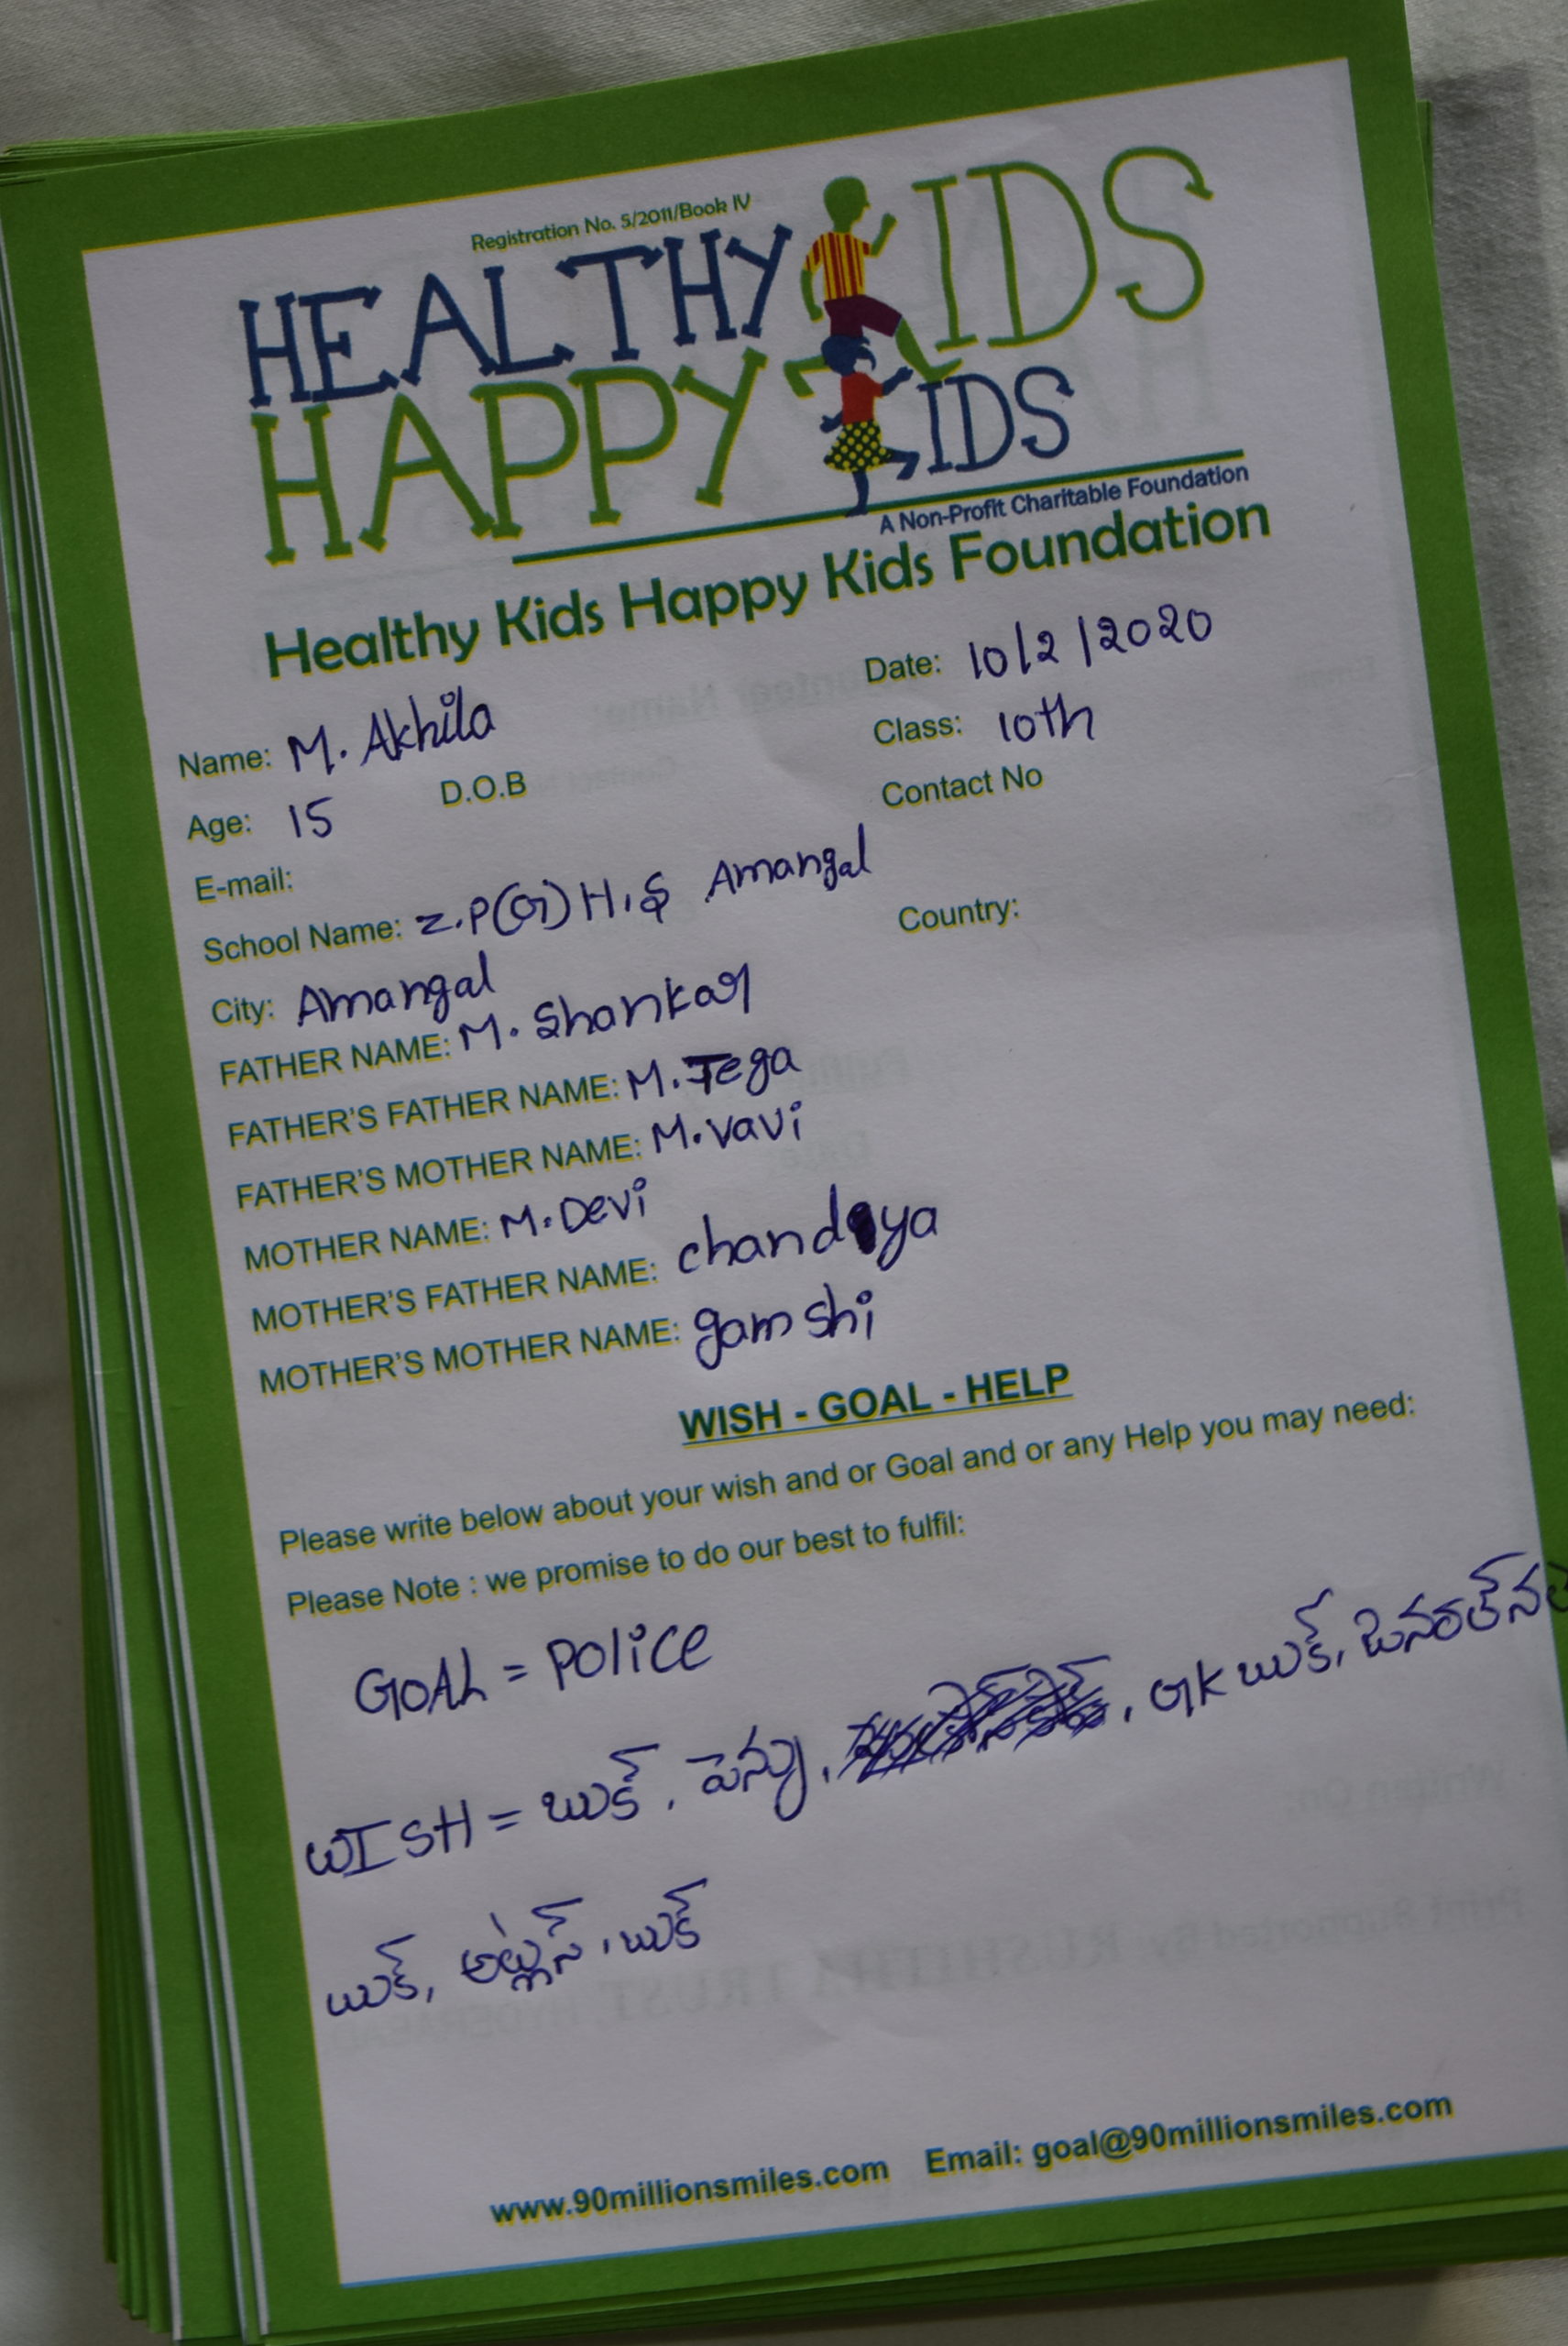 Registration No. 5/2011/Book IV
HEALTHY KIDS
HAPPY KIDS
A Non-Profit Charitable Foundation
Healthy Kids Happy Kids Foundation
Name: M. Akhila Date: 10/2/2020
Age: 15 D.O.B Class: 10th
E-mail: Contact No
School Name: Z.P(G) H.S Amangal
City: Amangal Country:
FATHER NAME: M. Shankar
FATHER'S FATHER NAME: M. Jega
FATHER'S MOTHER NAME: M. vavi
MOTHER NAME: M. Devi
MOTHER'S FATHER NAME: chandya
MOTHER'S MOTHER NAME: gamshi
WISH - GOAL - HELP
Please write below about your wish and or Goal and or any Help you may need:
Please Note : we promise to do our best to fulfil:
GOAL = POLICE
WISH = బుక్, పెన్ను, GK బుక్,
బుక్, బుక్
www.90millionsmiles.com Email: goal@90millionsmiles.com